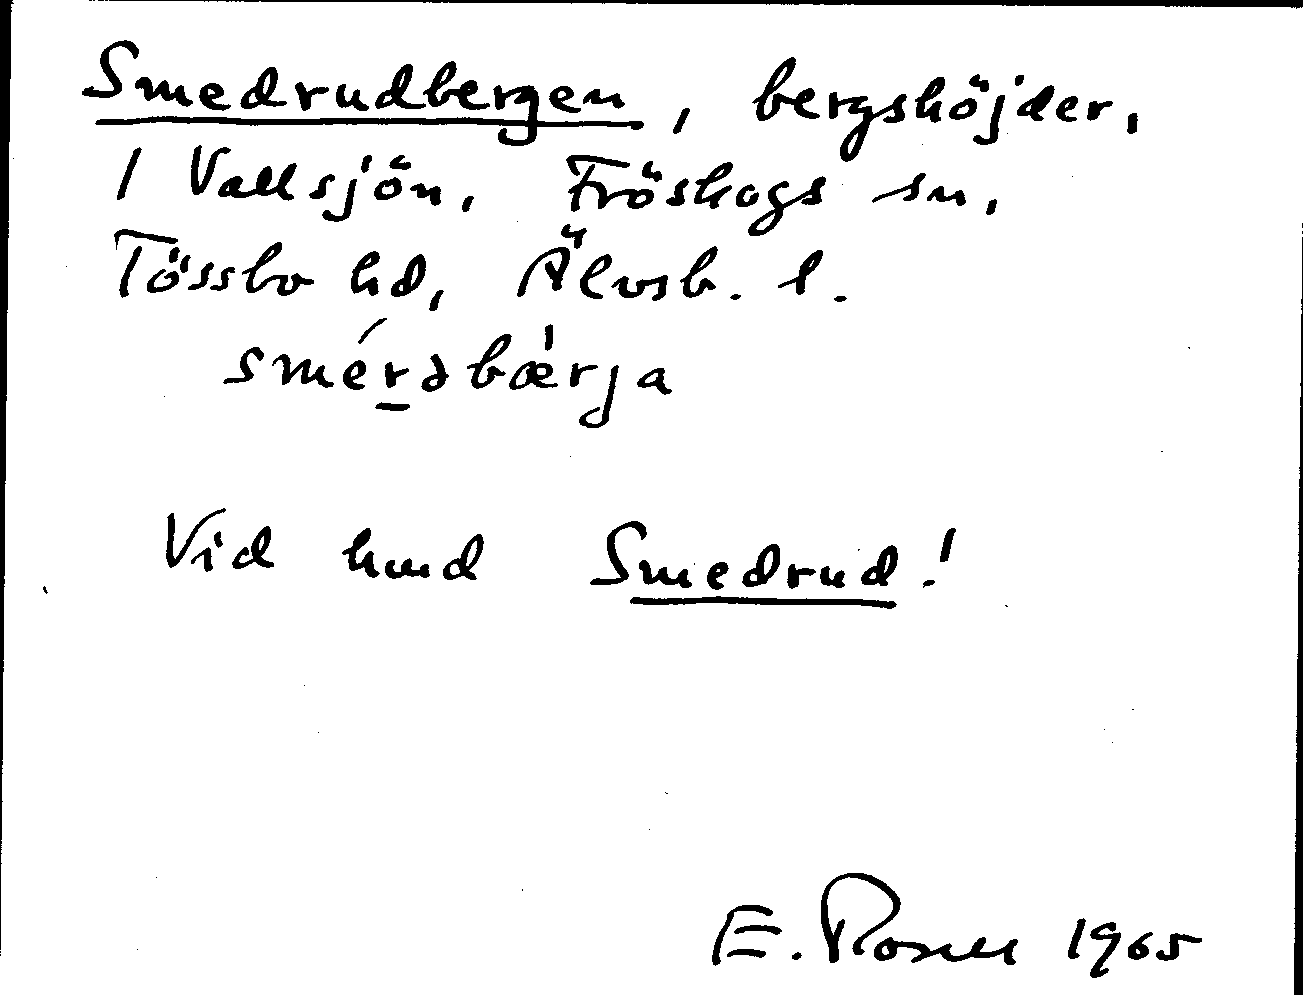 Smedrudbergen, bergshöjder,
1 Vallsjön, Fröskogs sn,
Tössbo hd, Älvsb. l.
smérdbǽrja
Vid hmd Smedrud!
E. Rosell 1965